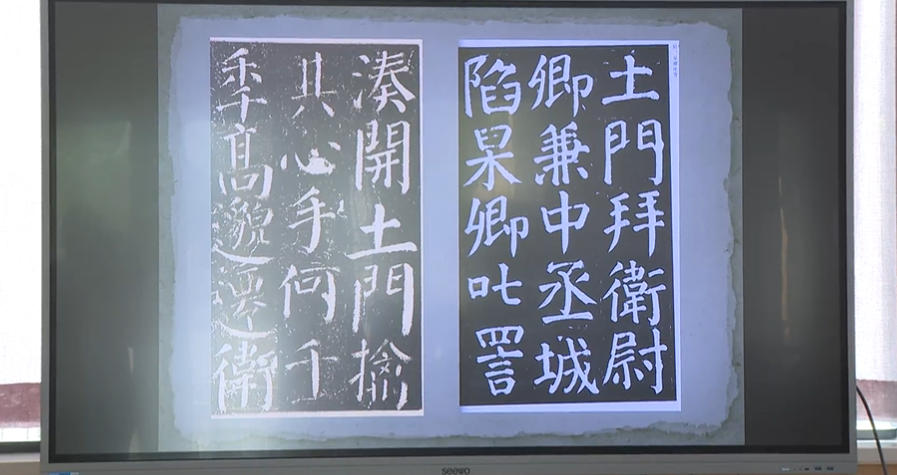 土門拜衛尉
卿兼中丞城
陷杲卿叱詈
湊開土門擒
其心手何千
年高邈遷衛
seewo